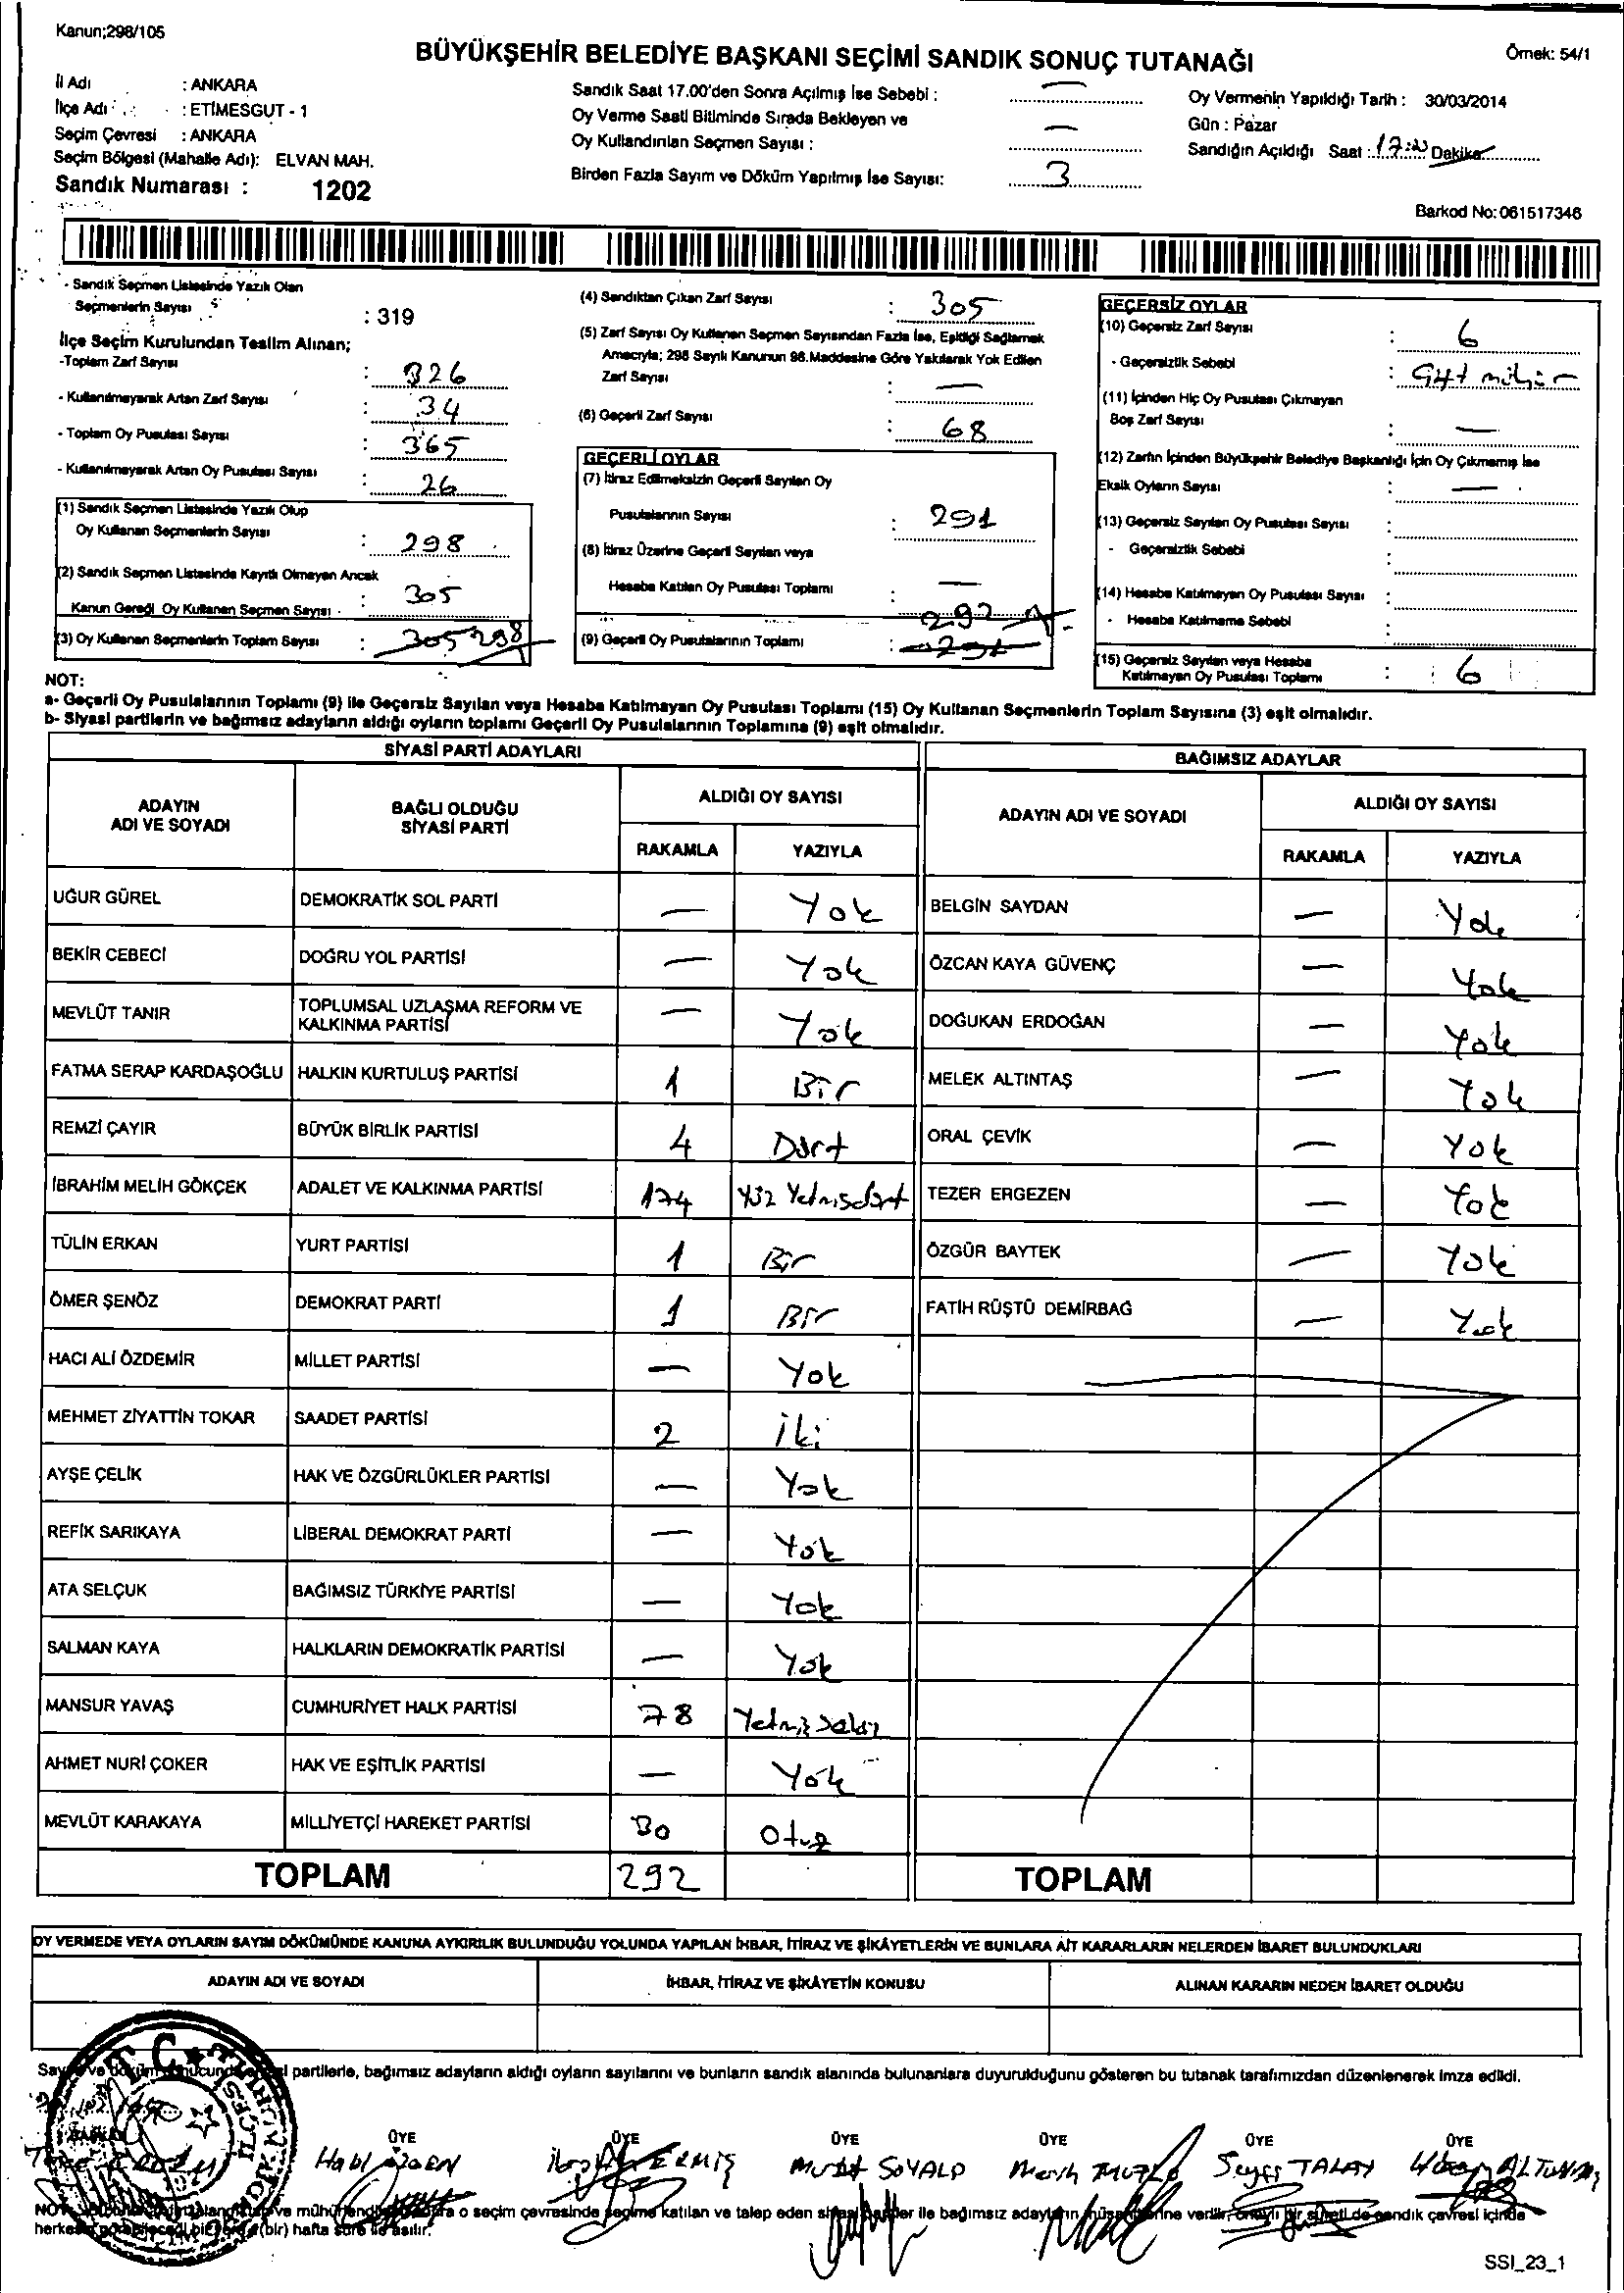 Kanun;298/105
BÜYÜKŞEHİR BELEDİYE BAŞKANI SEÇİMİ SANDIK SONUÇ TUTANAĞI
Örnek: 54/1
İl Adı : ANKARA
İlçe Adı : ETİMESGUT - 1
Seçim Çevresi : ANKARA
Seçim Bölgesi (Mahalle Adı): ELVAN MAH.
Sandık Numarası : 1202
Sandık Saat 17.00'den Sonra Açılmış İse Sebebi : —
Oy Verme Saati Bitiminde Sırada Bekleyen ve
Oy Kullandırılan Seçmen Sayısı : —
Birden Fazla Sayım ve Döküm Yapılmış İse Sayısı: 3
Oy Vermenin Yapıldığı Tarih : 30/03/2014
Gün : Pazar
Sandığın Açıldığı Saat : 17:00 Dakika
Barkod No: 061517346
- Sandık Seçmen Listesinde Yazılı Olan
Seçmenlerin Sayısı : 319
İlçe Seçim Kurulundan Teslim Alınan;
-Toplam Zarf Sayısı : 326
- Kullanılmayarak Artan Zarf Sayısı : 34
- Toplam Oy Pusulası Sayısı : 365
- Kullanılmayarak Artan Oy Pusulası Sayısı : 26
(1) Sandık Seçmen Listesinde Yazılı Olup
Oy Kullanan Seçmenlerin Sayısı : 298
(2) Sandık Seçmen Listesinde Kayıtlı Olmayan Ancak
Kanun Gereği Oy Kullanan Seçmen Sayısı : 305
(3) Oy Kullanan Seçmenlerin Toplam Sayısı : 305 298
(4) Sandıktan Çıkan Zarf Sayısı : 305
(5) Zarf Sayısı Oy Kullanan Seçmen Sayısından Fazla İse, Eşitliği Sağlamak
Amacıyla; 298 Sayılı Kanunun 98.Maddesine Göre Yakılarak Yok Edilen
Zarf Sayısı : —
(6) Geçerli Zarf Sayısı : 68
GEÇERLİ OYLAR
(7) İtiraz Edilmeksizin Geçerli Sayılan Oy
Pusulalarının Sayısı : 291
(8) İtiraz Üzerine Geçerli Sayılan veya
Hesaba Katılan Oy Pusulası Toplamı : —
292
(9) Geçerli Oy Pusulalarının Toplamı : 291
GEÇERSİZ OYLAR
(10) Geçersiz Zarf Sayısı : 6
- Geçersizlik Sebebi : Çift mühür
(11) İçinden Hiç Oy Pusulası Çıkmayan
Boş Zarf Sayısı : —
(12) Zarfın İçinden Büyükşehir Belediye Başkanlığı İçin Oy Çıkmamış İse
Eksik Oyların Sayısı : —
(13) Geçersiz Sayılan Oy Pusulası Sayısı :
- Geçersizlik Sebebi :
(14) Hesaba Katılmayan Oy Pusulası Sayısı :
- Hesaba Katılmama Sebebi :
(15) Geçersiz Sayılan veya Hesaba
Katılmayan Oy Pusulası Toplamı : 6
NOT:
a- Geçerli Oy Pusulalarının Toplamı (9) ile Geçersiz Sayılan veya Hesaba Katılmayan Oy Pusulası Toplamı (15) Oy Kullanan Seçmenlerin Toplam Sayısına (3) eşit olmalıdır.
b- Siyasi partilerin ve bağımsız adayların aldığı oyların toplamı Geçerli Oy Pusulalarının Toplamına (9) eşit olmalıdır.
SİYASİ PARTİ ADAYLARI
ADAYIN ADI VE SOYADI
BAĞLI OLDUĞU SİYASİ PARTİ
ALDIĞI OY SAYISI
RAKAMLA YAZIYLA
UĞUR GÜREL DEMOKRATİK SOL PARTİ — Yok
BEKİR CEBECİ DOĞRU YOL PARTİSİ — Yok
MEVLÜT TANIR TOPLUMSAL UZLAŞMA REFORM VE KALKINMA PARTİSİ — Yok
FATMA SERAP KARDAŞOĞLU HALKIN KURTULUŞ PARTİSİ 1 Bir
REMZİ ÇAYIR BÜYÜK BİRLİK PARTİSİ 4 Dört
İBRAHİM MELİH GÖKÇEK ADALET VE KALKINMA PARTİSİ 174 Yüz Yetmişdört
TÜLİN ERKAN YURT PARTİSİ 1 Bir
ÖMER ŞENÖZ DEMOKRAT PARTİ 1 Bir
HACI ALİ ÖZDEMİR MİLLET PARTİSİ — Yok
MEHMET ZİYATTİN TOKAR SAADET PARTİSİ 2 iki
AYŞE ÇELİK HAK VE ÖZGÜRLÜKLER PARTİSİ — Yok
REFİK SARIKAYA LİBERAL DEMOKRAT PARTİ — Yok
ATA SELÇUK BAĞIMSIZ TÜRKİYE PARTİSİ — Yok
SALMAN KAYA HALKLARIN DEMOKRATİK PARTİSİ — Yok
MANSUR YAVAŞ CUMHURİYET HALK PARTİSİ 78 Yetmiş sekiz
AHMET NURİ ÇOKER HAK VE EŞİTLİK PARTİSİ — Yok
MEVLÜT KARAKAYA MİLLİYETÇİ HAREKET PARTİSİ 30 Otuz
TOPLAM 292
BAĞIMSIZ ADAYLAR
ADAYIN ADI VE SOYADI
ALDIĞI OY SAYISI
RAKAMLA YAZIYLA
BELGİN SAYDAN — Yok
ÖZCAN KAYA GÜVENÇ — Yok
DOĞUKAN ERDOĞAN — Yok
MELEK ALTINTAŞ — Yok
ORAL ÇEVİK — Yok
TEZER ERGEZEN — Yok
ÖZGÜR BAYTEK — Yok
FATİH RÜŞTÜ DEMİRBAĞ — Yok
TOPLAM
OY VERMEDE VEYA OYLARIN SAYIM DÖKÜMÜNDE KANUNA AYKIRILIK BULUNDUĞU YOLUNDA YAPILAN İHBAR, İTİRAZ VE ŞİKÂYETLERİN VE BUNLARA AİT KARARLARIN NELERDEN İBARET BULUNDUKLARI
ADAYIN ADI VE SOYADI
İHBAR, İTİRAZ VE ŞİKÂYETİN KONUSU
ALINAN KARARIN NEDEN İBARET OLDUĞU
T.C.
partilerle, bağımsız adayların aldığı oyların sayılarını ve bunların sandık alanında bulunanlara duyurulduğunu gösteren bu tutanak tarafımızdan düzenlenerek imza edildi.
ÜYE ÜYE ÜYE ÜYE ÜYE ÜYE
Murat SOYALP TALAY
o seçim çevresinde seçime katılan ve talep eden ile bağımsız adayların verilir, sandık çevresi içinde
(bir) hafta süre ile asılır.
SSI_23_1